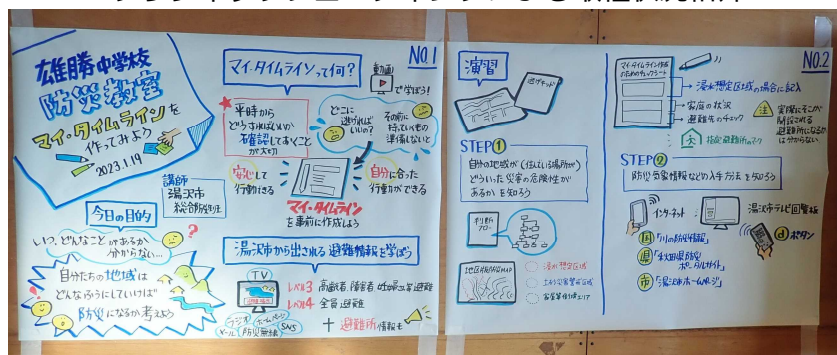 雄勝中学校
防災教室
マイ・タイムラインを
作ってみよう
2023.1.19
講師
湯沢市
今日の目的
いつ、どんなことがあるか
分からない…
自分たちの地域は
どんなふうにしていけば
防災になるか考えよう
NO.1
マイ・タイムラインって何?
動画
で学ぼう!
平時から
どうすればいいか
確認しておくこと
が大切
どこに
逃げれば
いいの?
その前に
持っていくもの
準備しないと
安心して
行動できる
自分に合った
行動ができる
マイ・タイムライン
を事前に作成しよう
湯沢市から出される避難情報を学ぼう
TV
ラジオ
ホームページ
メール
防災無線
SNS
レベル3 高齢者 障害者 妊婦さん等避難
レベル4 全員避難
+ 避難所情報も
NO.2
演習
逃げキッド
STEP①
自分の地域が(住んでいる場所が)
どういった災害の危険性が
あるか を知ろう
判断
フロー
浸水想定区域
土砂災害警戒区域
マイ・タイムライン作成
のためのチェックシート
浸水想定区域の場合に記入
家庭の状況
避難先のチェック
指定避難所のマーク
注
実際にそこが
開設される
避難所になるか
は分からない
STEP②
防災気象情報などの入手方法を知ろう
インターネット
湯沢市テレビ回覧板
dボタン
国「川の防災情報」
県「秋田県防災
ポータルサイト」
市「湯沢市ホームページ」